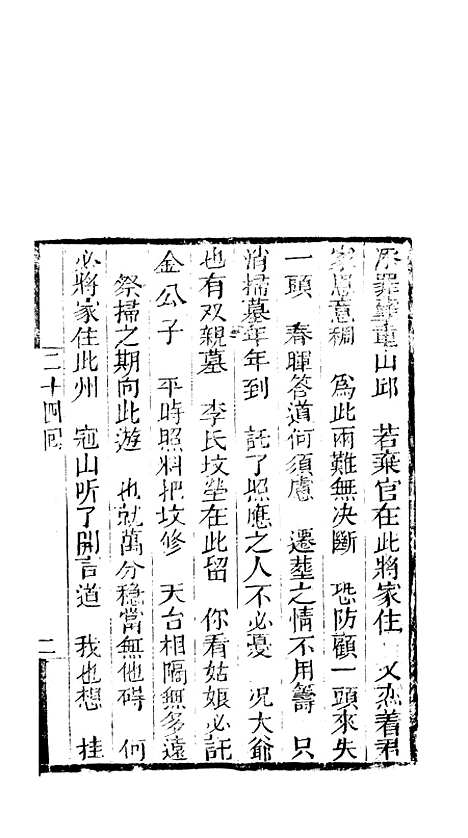 罪難重山邱 若棄官在此將家住 又為着君
家恩意稠 為此兩難無决斷 恐防顧一頭來失
一頭 春暉答道何須慮 遷塟之情不用籌 只
消掃墓年年到 託了照應之人不必憂 况大爺
也有双親墓 李氏坟塋在此留 你看姑娘必託
金公子 平時照料把坟修 天台相隔無多遠
祭掃之期向此遊 也就萬分稳當無他碍 何
必將家住此州 寇山听了開言道 我也想 挂
二十四回 二